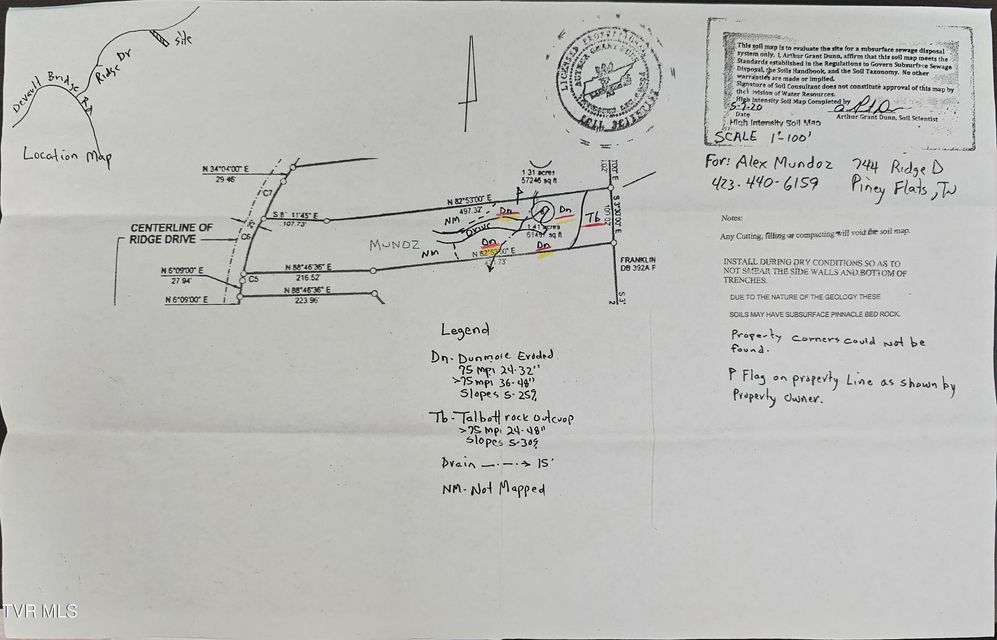 Devault Bridge Rd
Ridge Dr
Site
Location Map
LICENSED PROFESSIONAL
ARTHUR GRANT DUNN
SOIL SCIENTIST
This soil map is to evaluate the site for a subsurface sewage disposal
system only. I, Arthur Grant Dunn, affirm that this soil map meets the
Standards established in the Regulations to Govern Subsurface Sewage
Disposal, the Soils Handbook, and the Soil Taxonomy. No other
warranties are made or implied.
Signature of Soil Consultant does not constitute approval of this map by
the Division of Water Resources.
High Intensity Soil Map Completed by
5-7-20
Date
Arthur Grant Dunn, Soil Scientist
High Intensity Soil Map
SCALE 1"-100'
For: Alex Mundoz
744 Ridge D
423-440-6159
Piney Flats, TN
Notes:
Any Cutting, filling or compacting will void the soil map.
INSTALL DURING DRY CONDITIONS SO AS TO
NOT SMEAR THE SIDE WALLS AND BOTTOM OF
TRENCHES.
DUE TO THE NATURE OF THE GEOLOGY THESE
SOILS MAY HAVE SUBSURFACE PINNACLE BED ROCK.
Property corners could not be
found.
P Flag on property Line as shown by
Property Owner.
N 34°04'00" E
29.46'
C7
S 8 11'45" E
107.73'
20'
CENTERLINE OF
RIDGE DRIVE
C6
N 6°09'00" E
27.94'
C5
N 6°09'00" E
N 88°46'36" E
216.52'
N 88°46'36" E
223.96'
MUNOZ
N 82°53'00" E
497.32'
NM
Drive
NM
Dn
Dn
Dn
Dn
Tb
P
1.31 acres
57246 sq ft
1.41 acres
N 82°53'00" E
FRANKLIN
DB 392A F
Legend
Dn- Dunmore Eroded
75 mpi 24-32"
>75 mpi 36-48"
Slopes 5-25%
Tb- Talbott rock outcrop
>75 mpi 24-48"
Slopes 5-30%
Drain 15'
NM- Not Mapped
TVR MLS